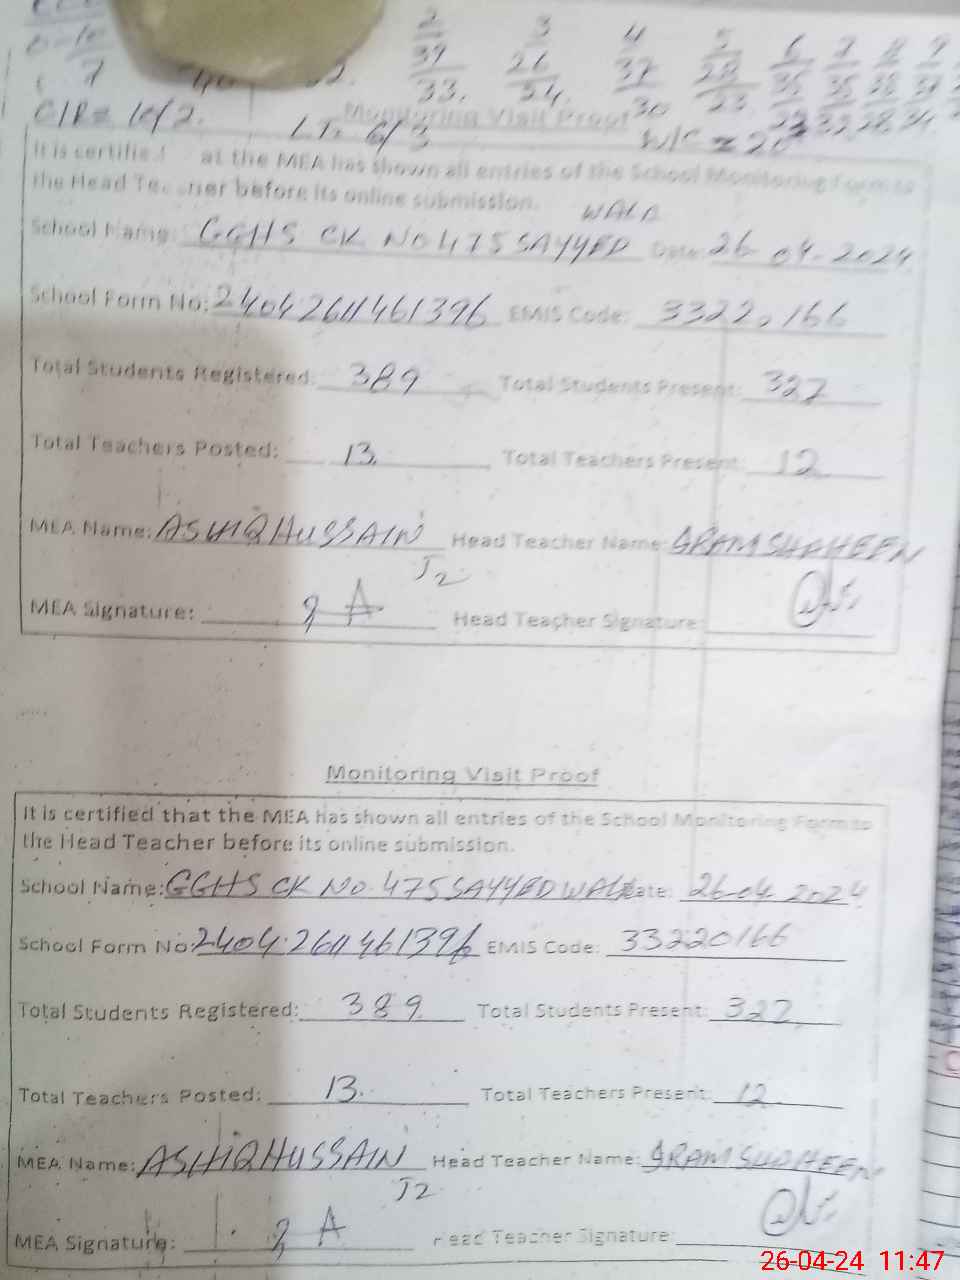 2 3 4 5 6 7 8 9
39 26 37 28 36 35 38
33. 24. 30 23 29 32 28
7
C/R = 10/2. LT. 6/3 W/C = 20
Monitoring Visit Proof
It is certified at the MEA has shown all entries of the School Monitoring Form to
the Head Teacher before its online submission.
WALA
School Name: GGHS CK NO 475 SAYYED Date: 26-04-2024
School Form No: 2404261146 1396 EMIS Code: 33220166
Total Students Registered: 389 Total Students Present: 327
Total Teachers Posted: 13. Total Teachers Present: 12
MEA Name: ASHIQ HUSSAIN Head Teacher Name: IRAM SHAHEEN
J2
MEA Signature: Head Teacher Signature:
Monitoring Visit Proof
It is certified that the MEA has shown all entries of the School Monitoring Form to
the Head Teacher before its online submission.
School Name: GGHS CK NO. 475 SAYYED WALA Date: 26-04-2024
School Form No: 2404261146 1396 EMIS Code: 33220166
Total Students Registered: 389 Total Students Present: 327
Total Teachers Posted: 13. Total Teachers Present: 12
MEA Name: ASHIQ HUSSAIN Head Teacher Name: IRAM SHAHEEN
J2
MEA Signature: Head Teacher Signature:
26-04-24 11:47